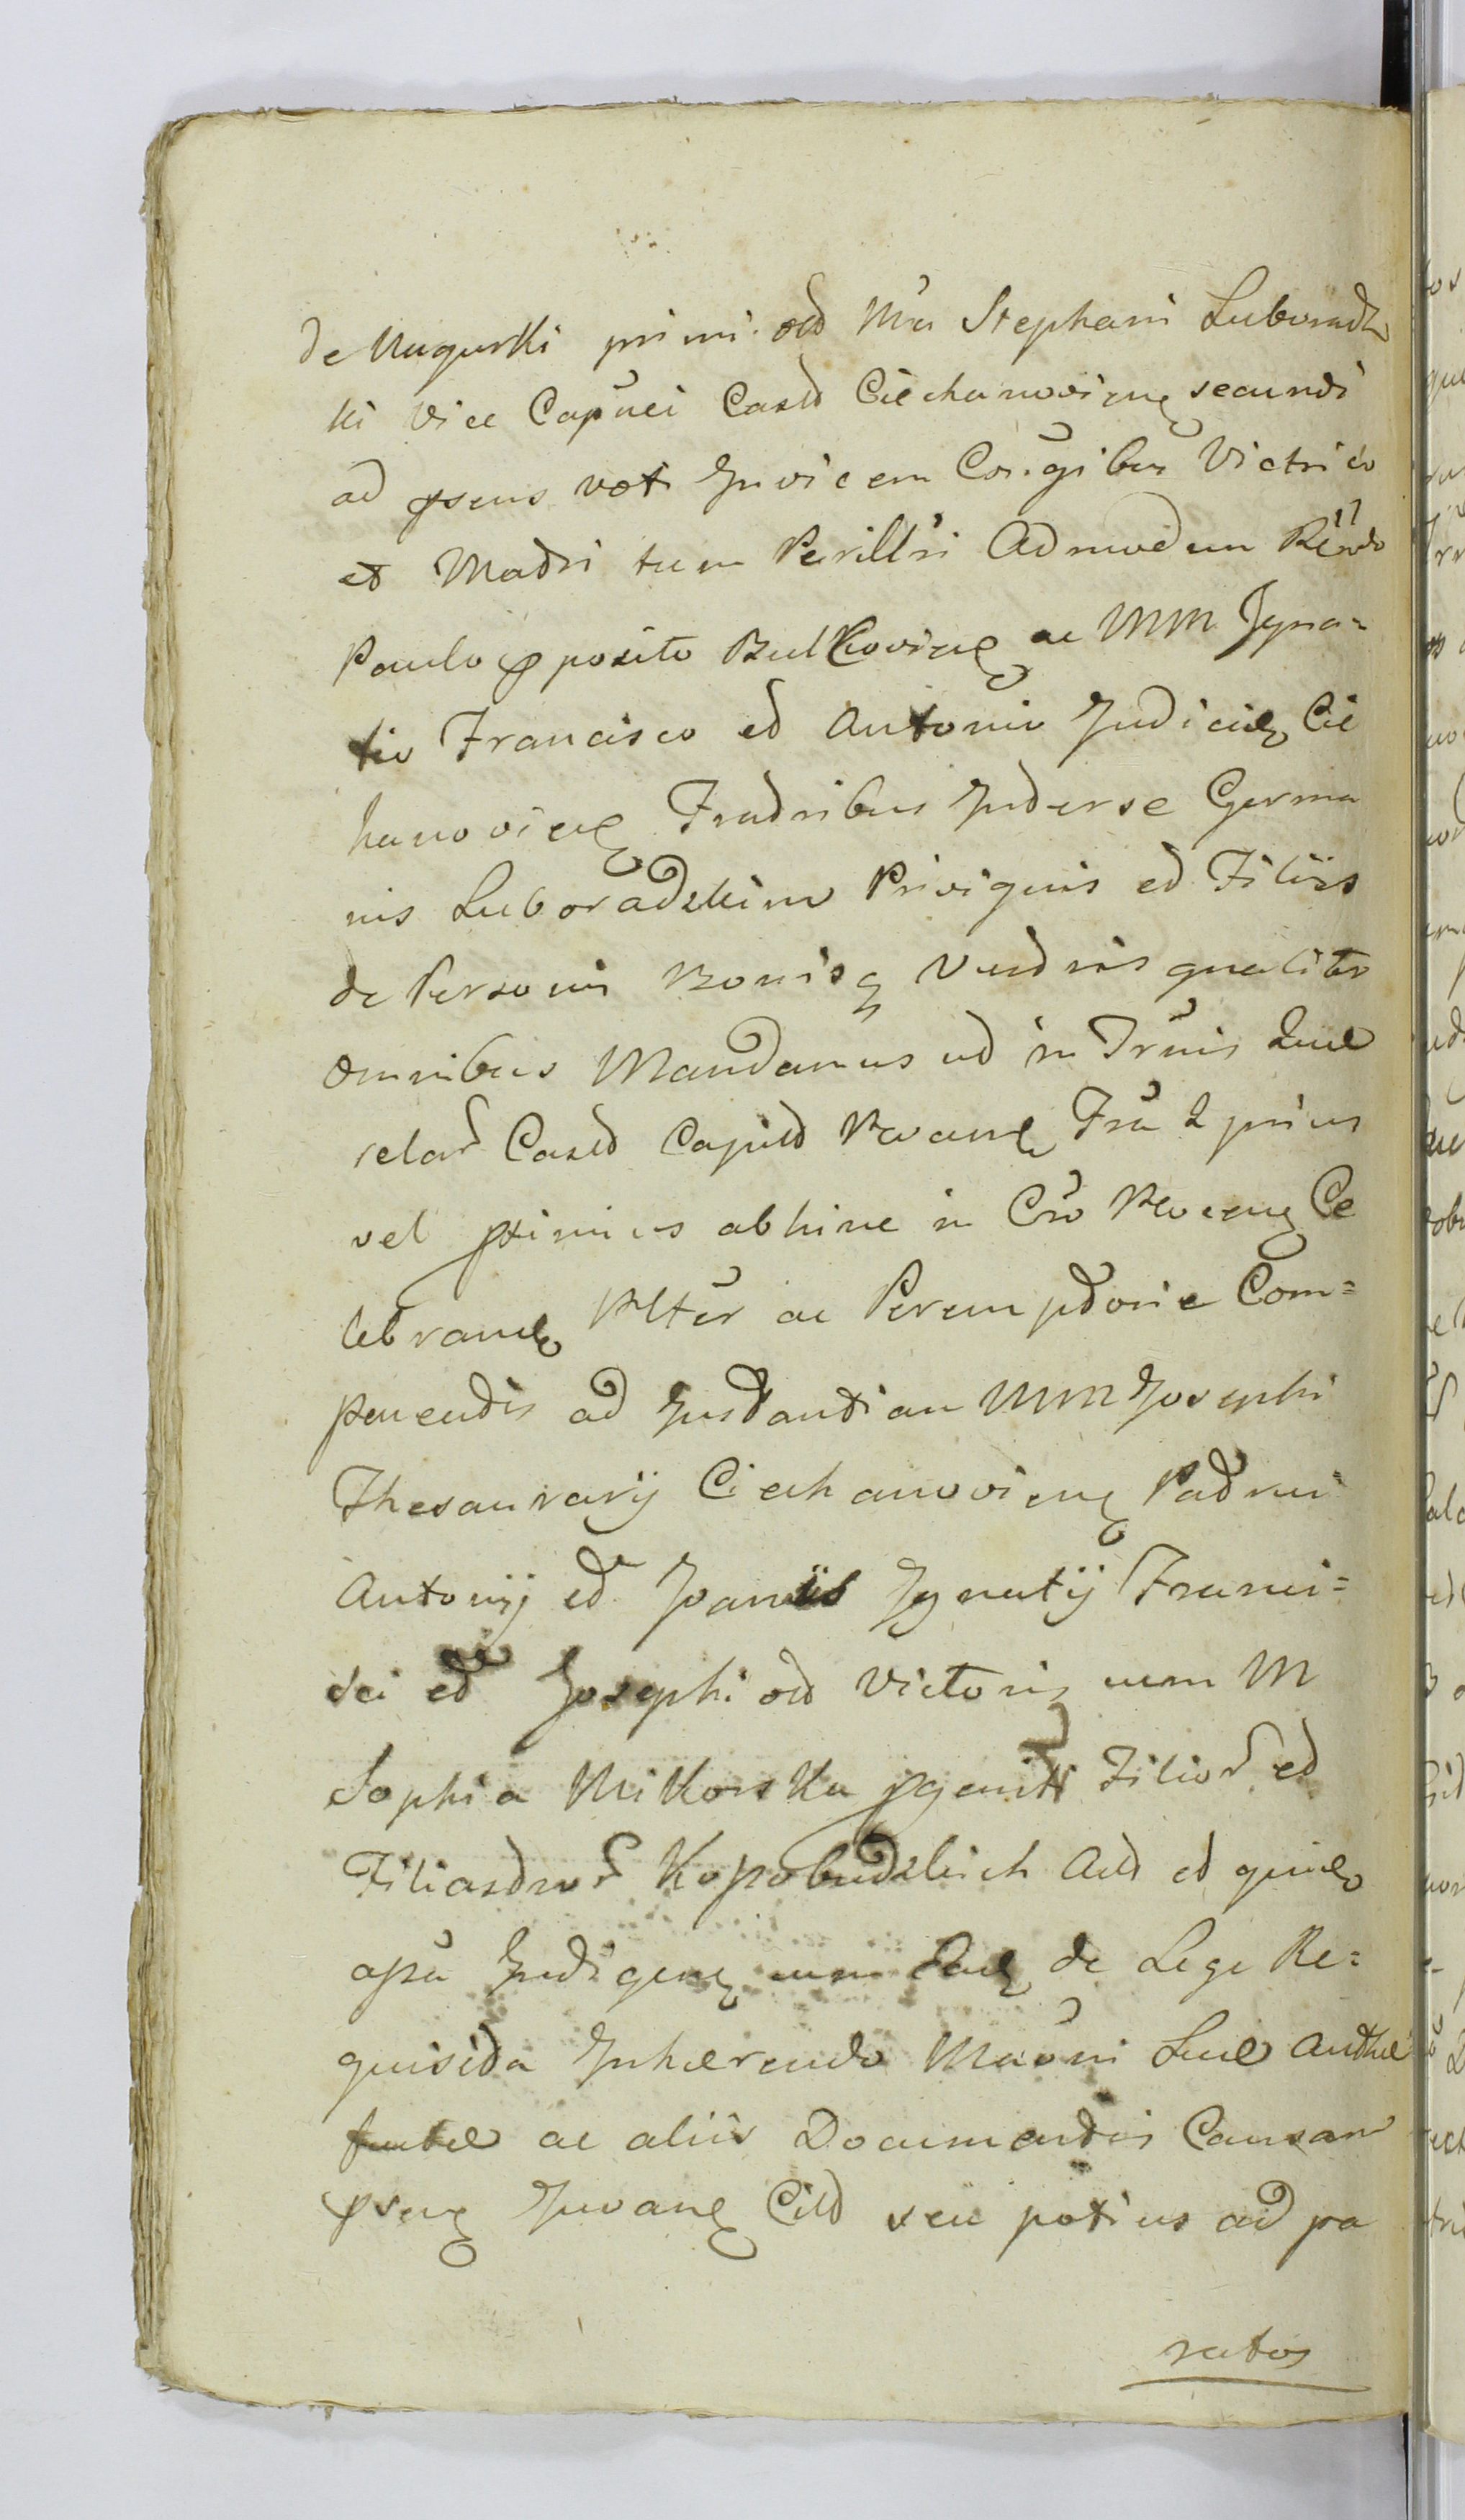 de Mugurski primi ad Mci Stephani Luboradz
ki Vice Capnei Casts Ciechanovieñ secundi
ad psens voti Invicem Conjgibus Victrico
et Matri tum Perillri Admodum Rendo
Paulo pposito Bulkovieñ ac MM Igna=
tio Francisco et Antonio Judicidę Cie
hanovieñ Fratribus Interse Germa
nis Luboradzkim Privignis et Filiis
de Personis Bonisq Vestris qualiter
omnibus Mandamus ut in Trmis Quæ
relar Casts Capits Racianę Fra 2 prius
vel pximius abhinc in Cro Racieñ Ce
lebrandę Pltêr ac Peremptorie Com=
pareatis ad Instantiam MM Josephi
Thesaurarij Ciechanovieñ Patrui
Antonij et Joannis Ignatij Franci=
sci et Josephi ad Victoris cum M
Sophia Mikorska pgenitt Filior et
Filiastror Kossobudzkich Act et
apu Indigenę cum de Lege Re=
quisita Inhærendo Maôni Suæ Authæ
ac aliis Documentis Causam
psenę Juvanę Citt seu potius ad pa
ratos